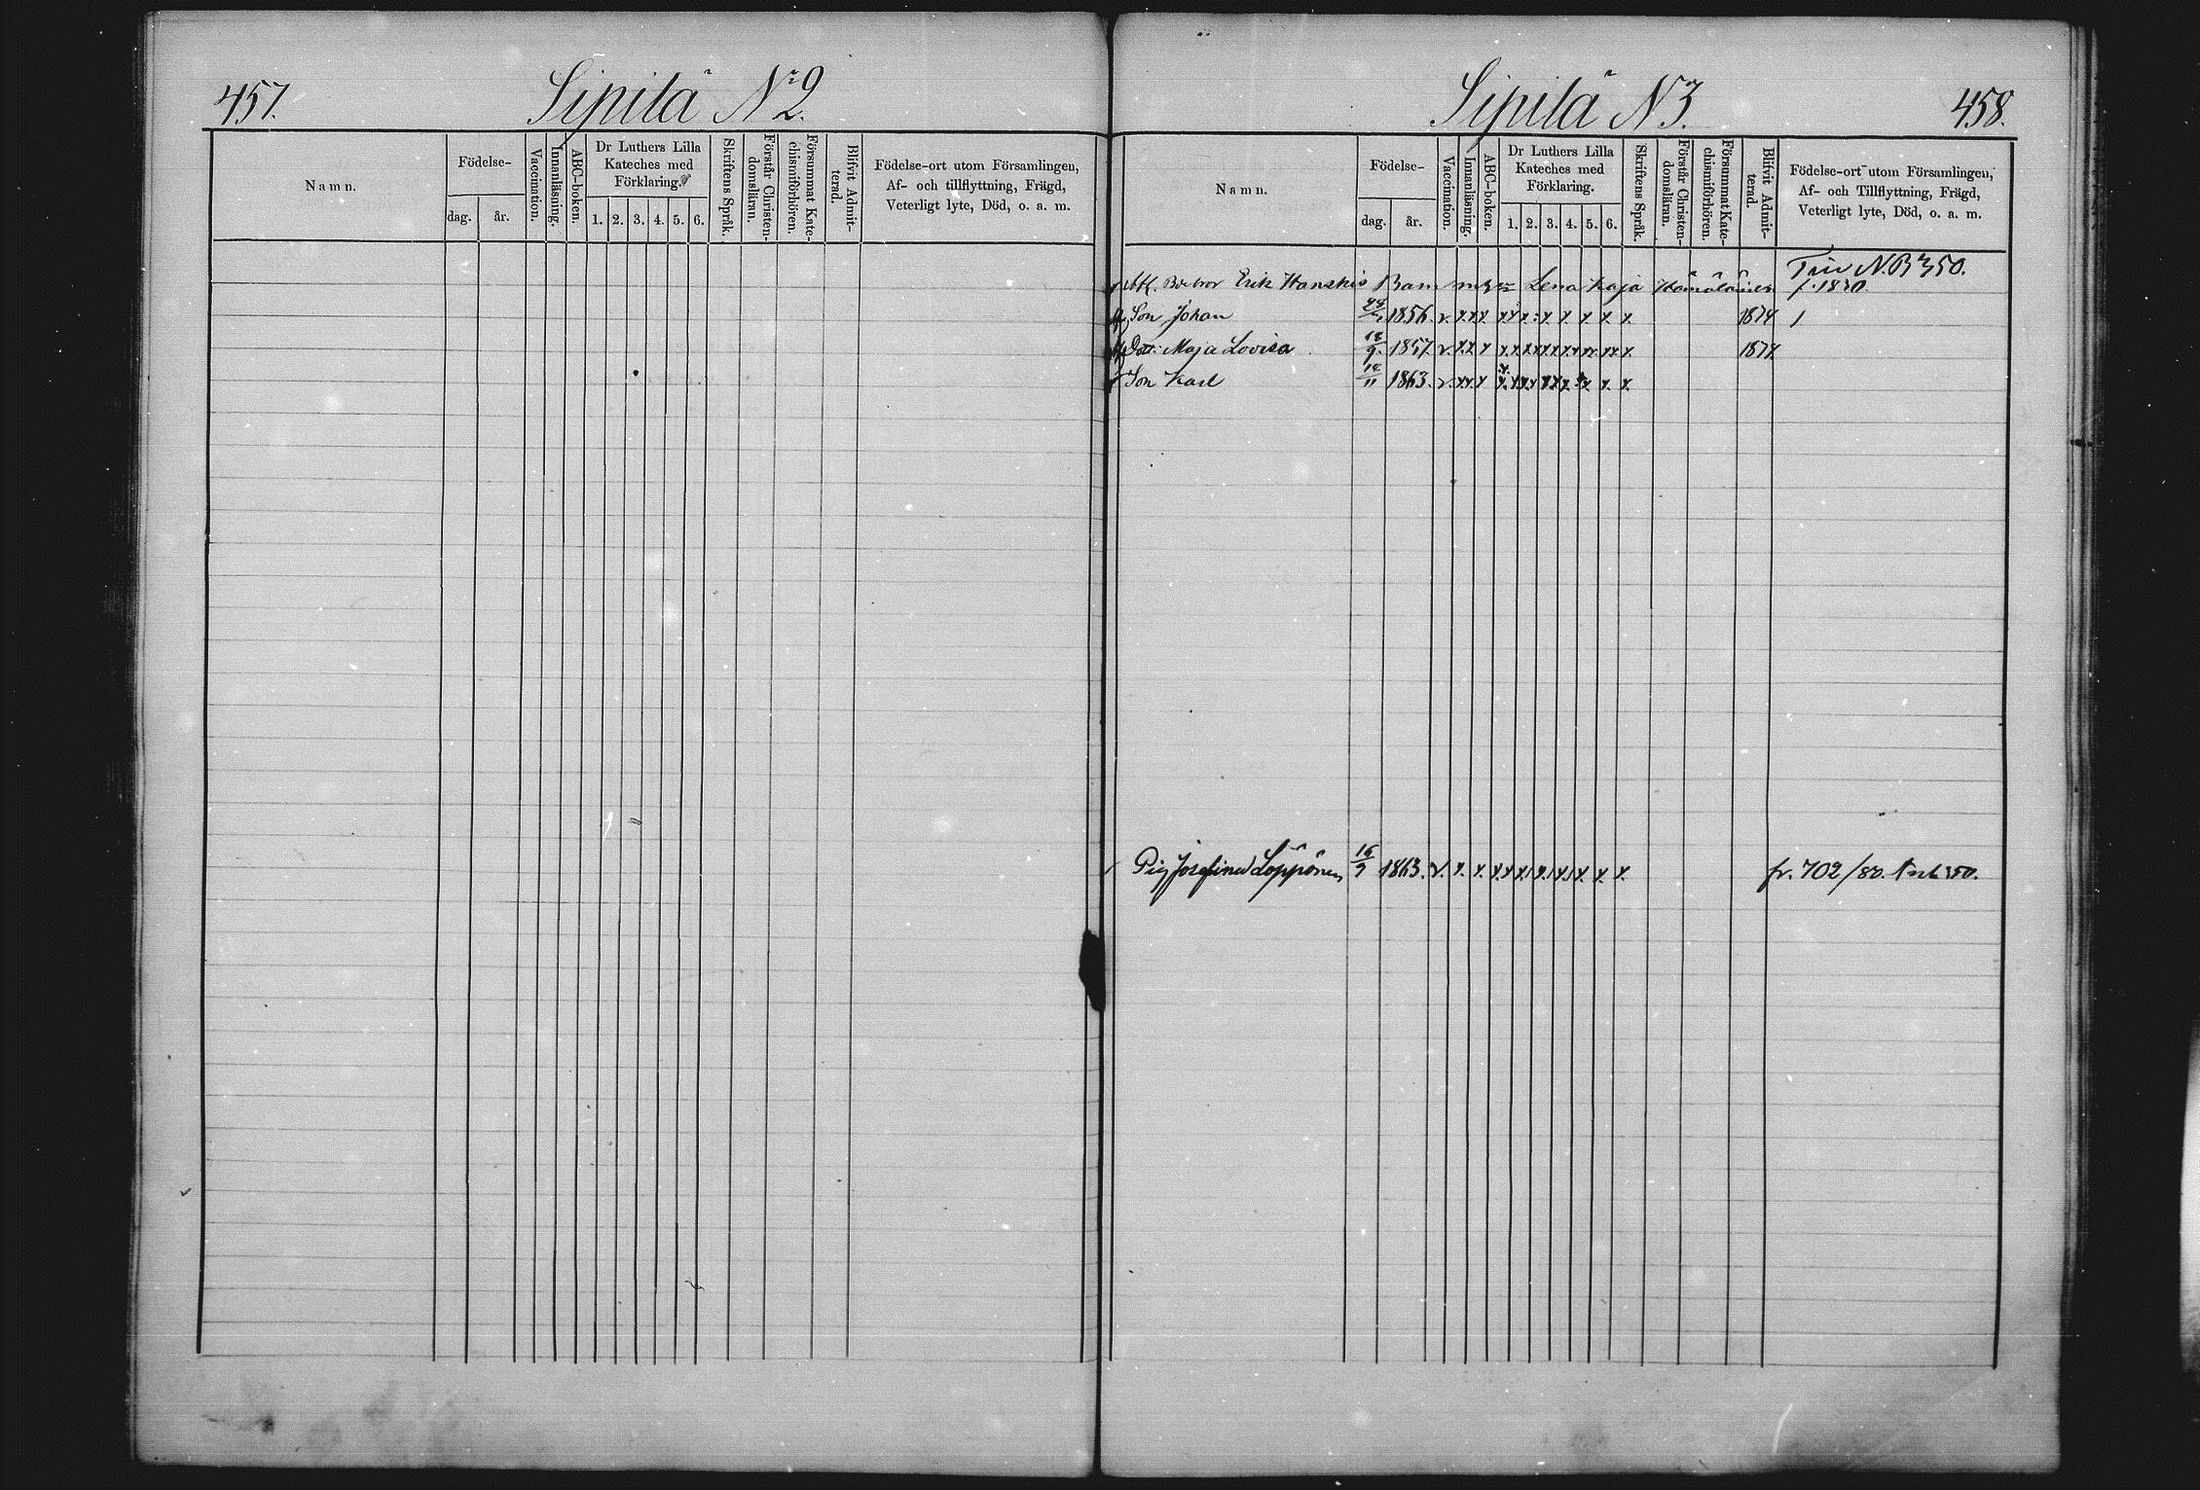 457.
Sipilä No 2.
Namn.
Födelse-
dag.
år.
Vaccination.
Innanläsning.
ABC-boken.
Dr Luthers Lilla
Kateches med
Förklaring.
1. 2. 3. 4. 5. 6.
Skriftens Språk.
Förstår Christen-
domsläran.
Försummat Kate-
chismiförhören.
Blifvit Admit-
terad.
Födelse-ort utom Församlingen,
Af- och tillflyttning, Frägd,
Veterligt lyte, Död, o. a. m.
Sipilä N 3.
458.
Namn.
Födelse-
dag.
år.
Vaccination.
Innanläsning.
ABC-boken.
Dr Luthers Lilla
Kateches med
Förklaring.
1. 2. 3. 4. 5. 6.
Skriftens Språk.
Förstår Christen-
domsläran.
Försummat Kate-
chismiförhören.
Blifvit Admit-
terad.
Födelse-ort utom Församlingen,
Af- och Tillflyttning, Frägd,
Veterligt lyte, Död, o. a. m.
Erik Hanskis Barn Lena Kaja Hämäläinen f. 1830.
Son Johan 1856. v. x x x x x x x x x x x 1874
Dott. Maja Lovisa 18/9. 1857. v. x x x x x x x x x x x 1874
Son Karl 14/11 1863. v. x x x x x x x x x x x
Pig Josefina Löppönen 16/9 1863. v. x. x. x. x. x. x. x. x. x. x. fr. 702/80.